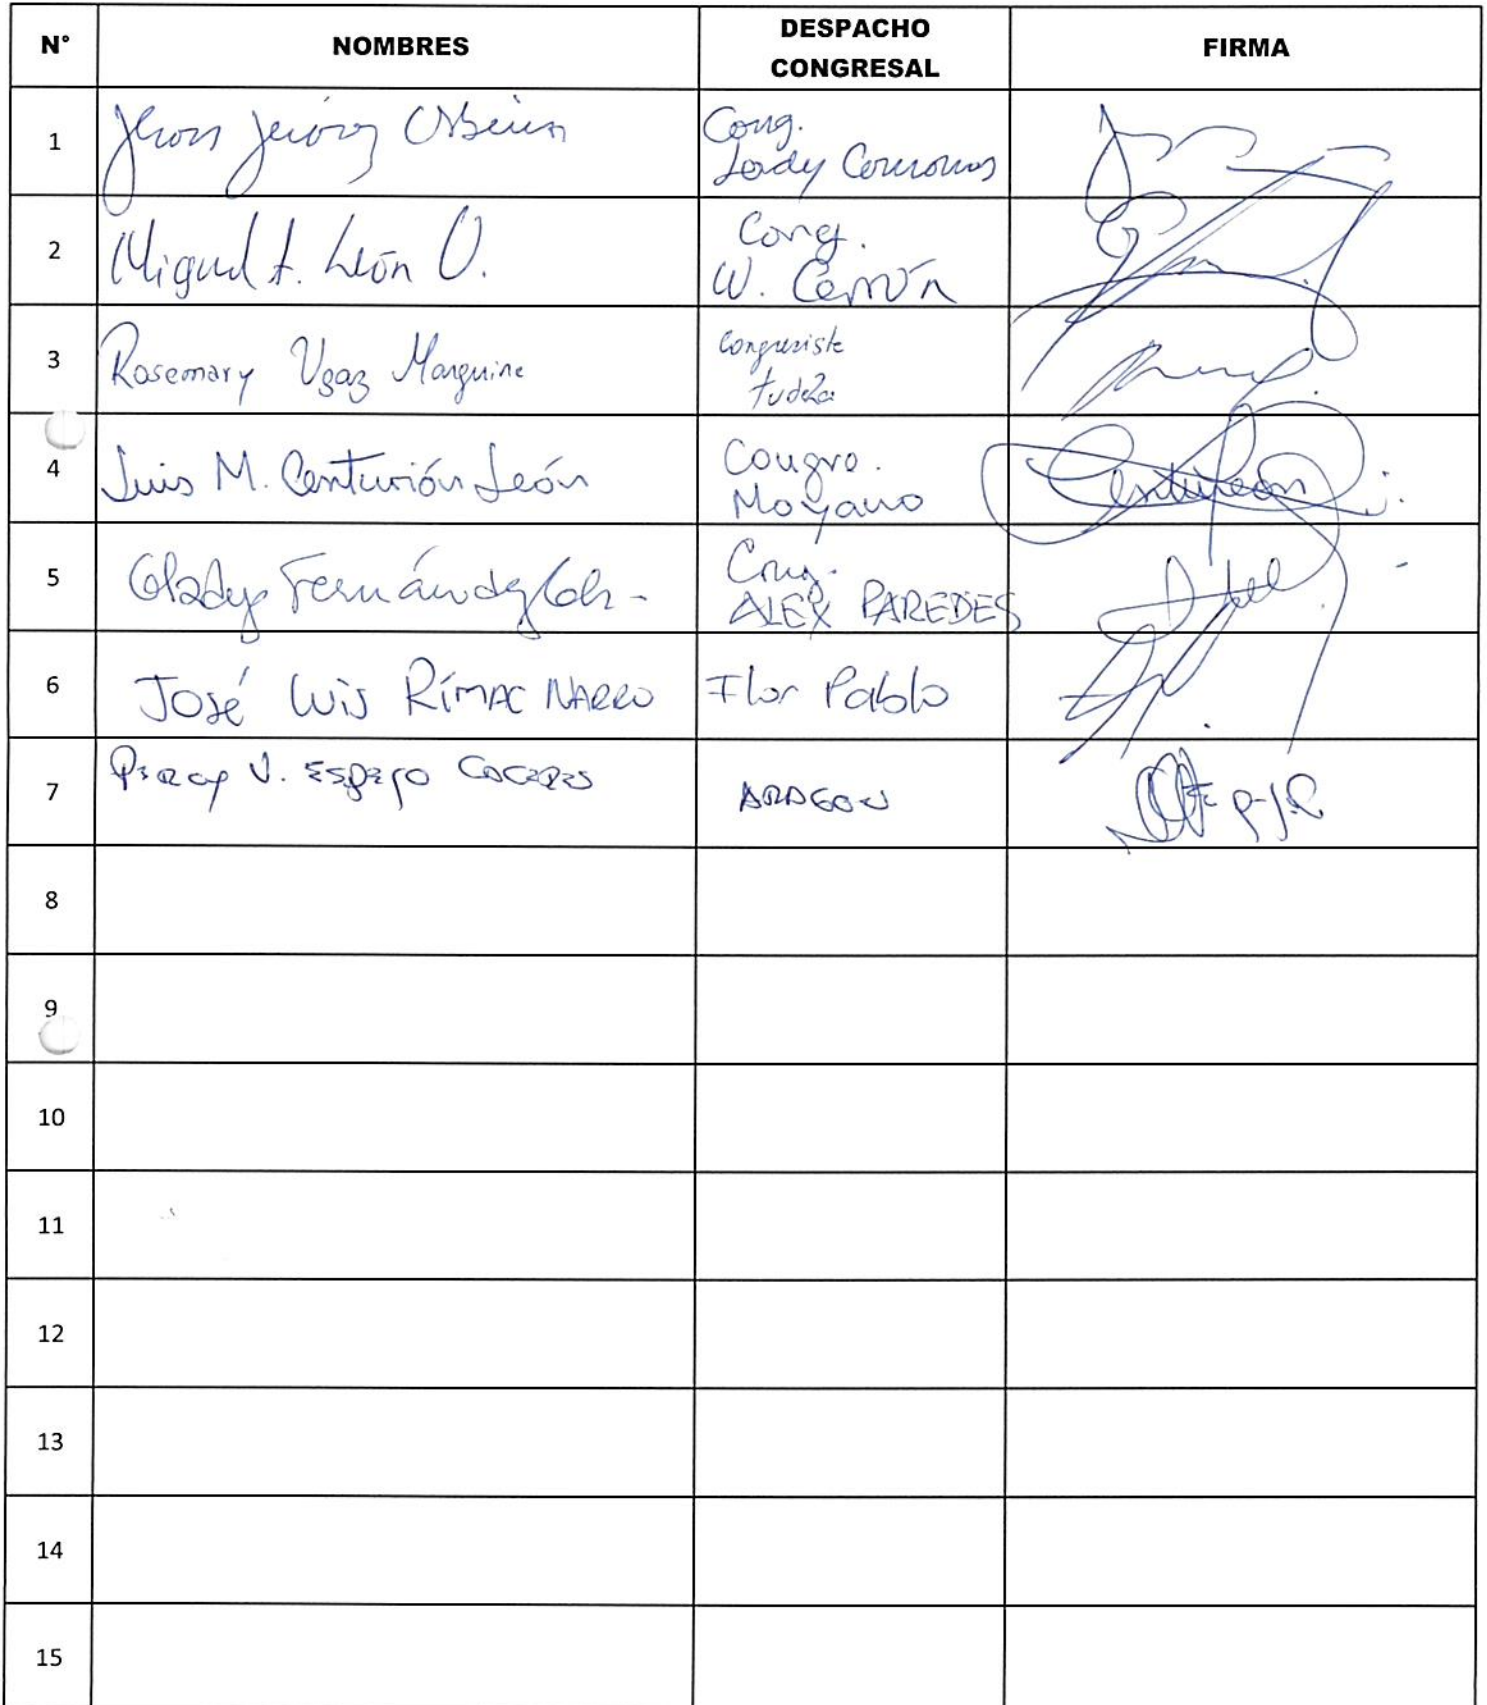 N° NOMBRES DESPACHO CONGRESAL FIRMA
1 Jhon Cong.
Lady
2 Miguel A. León O. Cong.
W. Cerrón
3 Rosemary Ugaz Marquine congresiste
tudela
4 Luis M. Centurión León Congre.
Moyano Centuleón
5 Gladys Fernández Cong.
ALEX PAREDES
6 José Luis Rímac NARRO Flor Pablo
7 Percy V. Espejo Caceres ARAGON
8
9
10
11
12
13
14
15